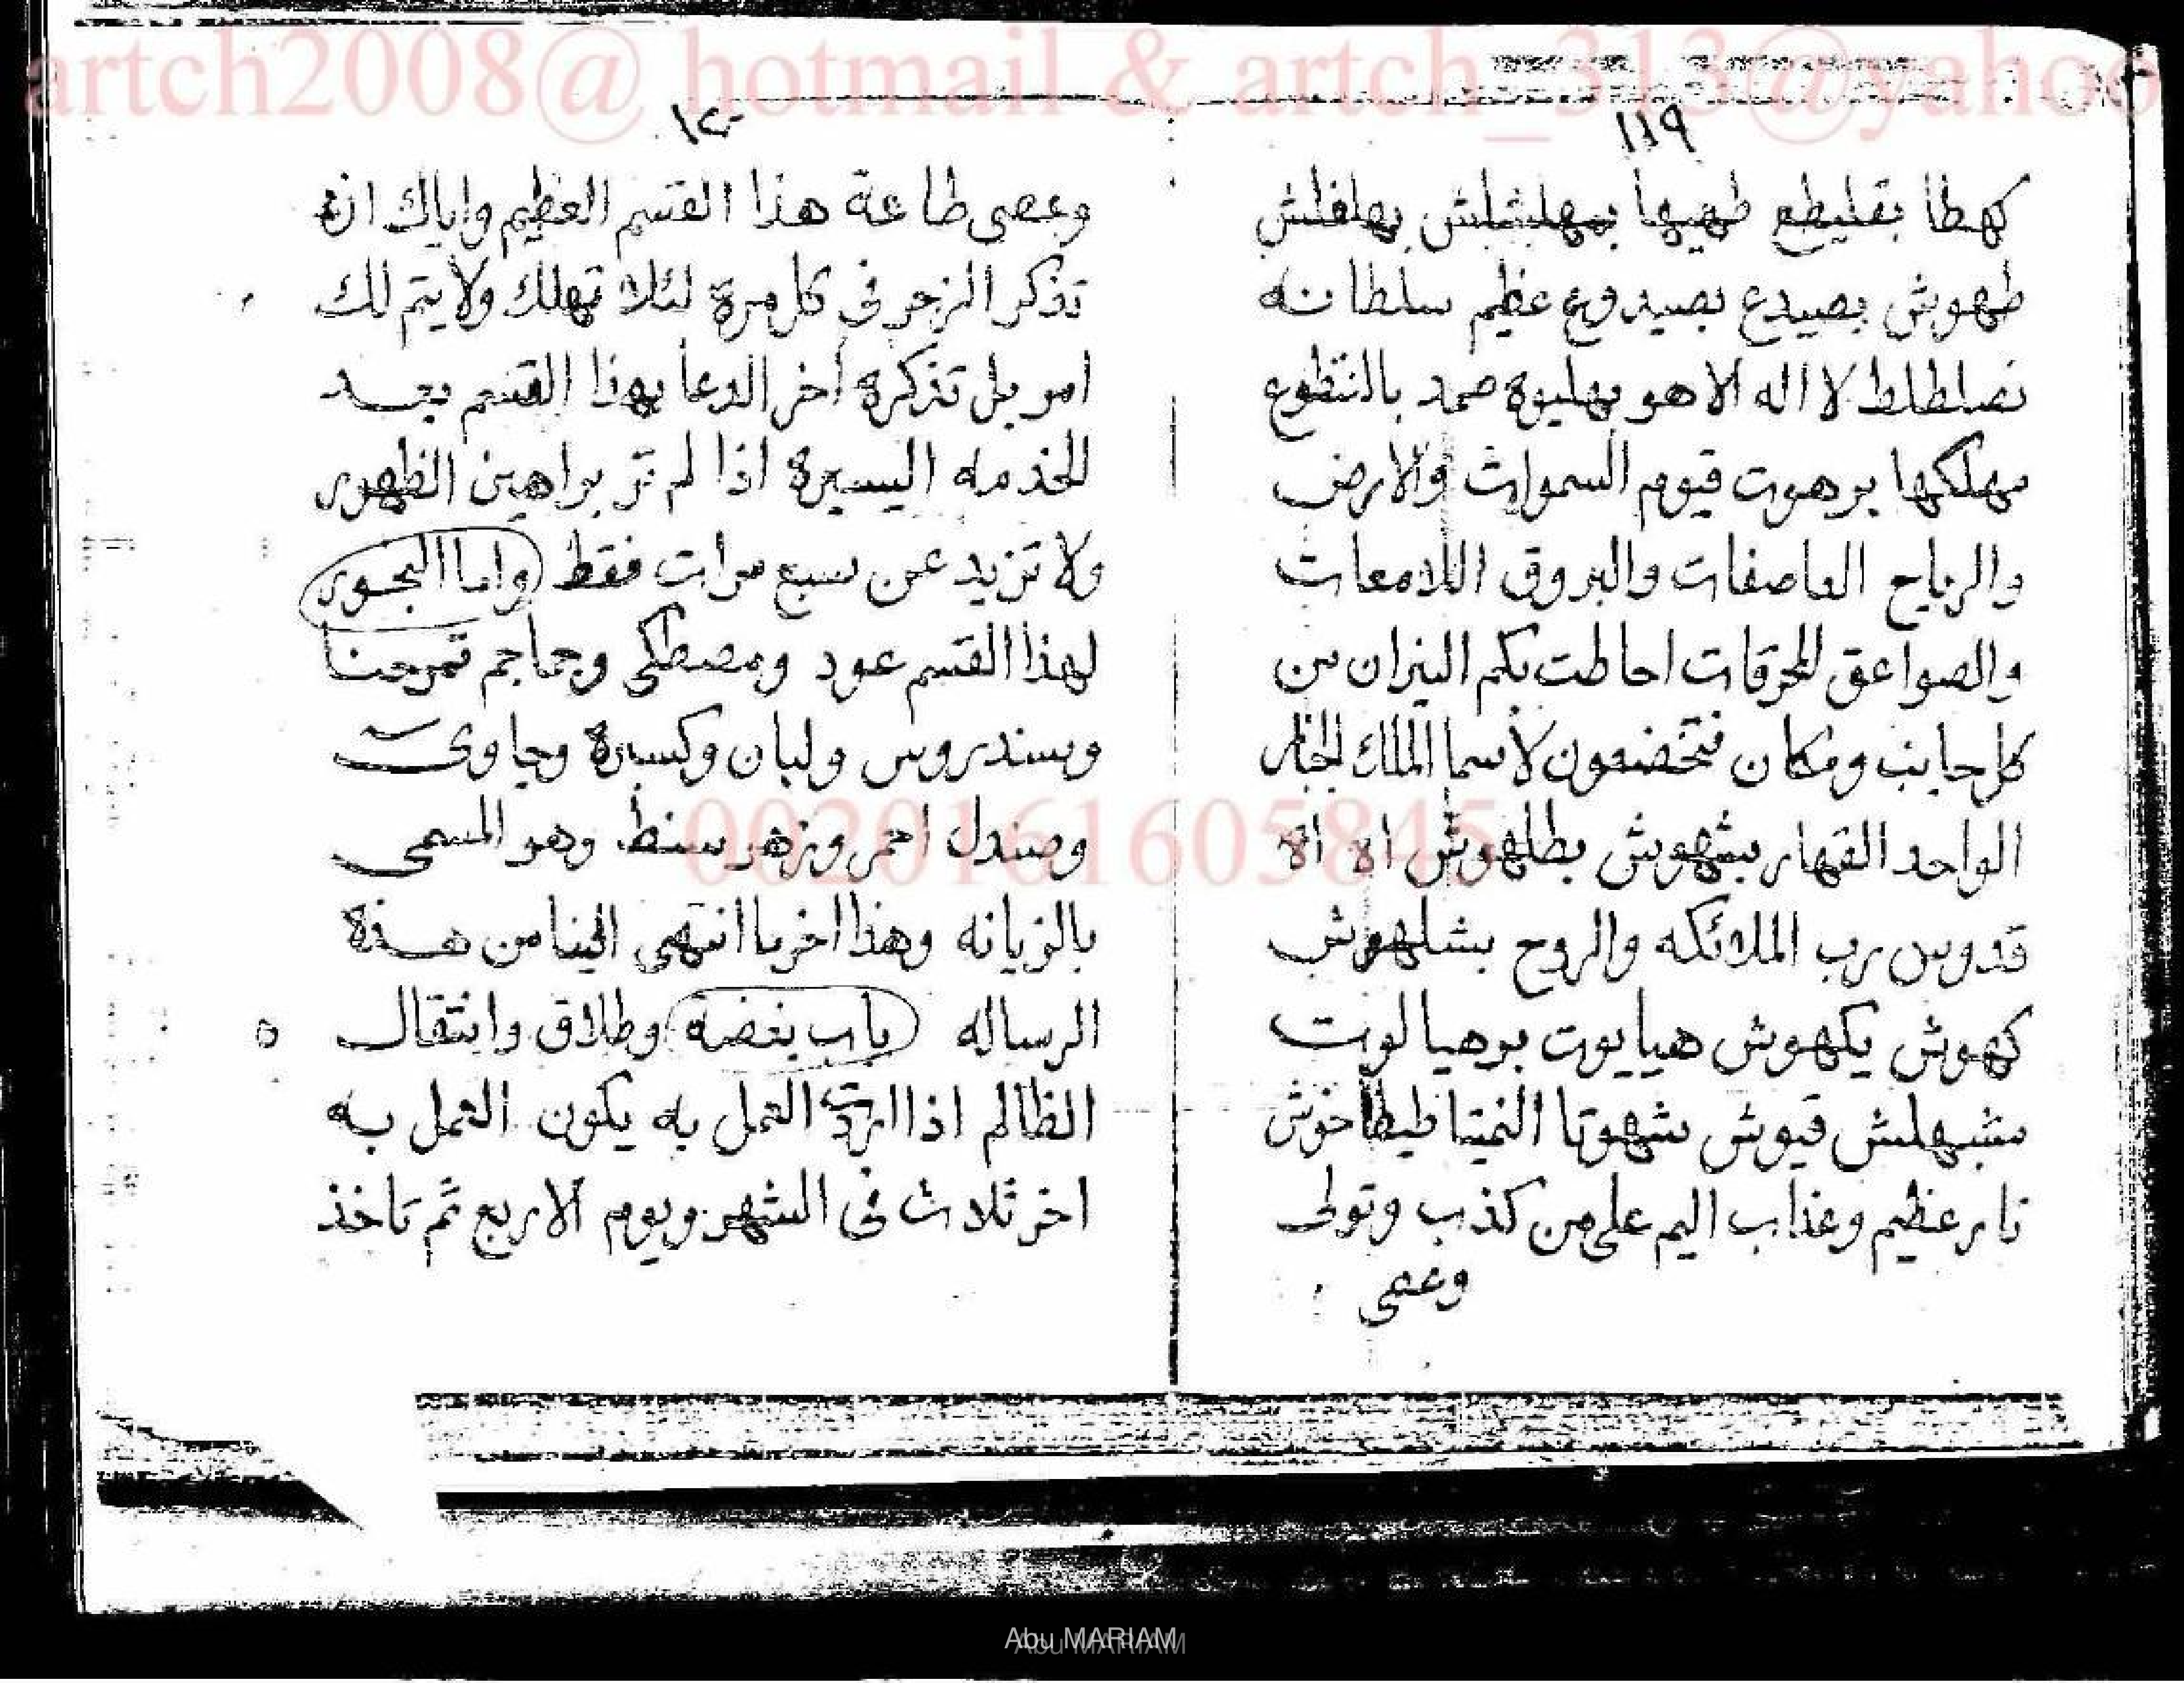 artch2008@ hotmail & artch_313@yahoo
١١٩
كهطا بقليطع طهيها بمهلشلش بهلفلش
طهوش بصيدع بصيدوع عظيم سلطانه
نصلطلط لا اله الا هو بهليوة صمد بالنتطوع
مهلكها برهوت قيوم السموات والارض
والرياح العاصفات والبروق اللامعات
والصواعق المحرقات احاطت بكم النيران من
كل جانب ومكان فتخضعون لاسما الملك الجبار
الواحد القهار بشهوش بطلهوش اه اه
قدوس رب الملائكه والروح بشلهوش
كهوش يكهوش هيايوت برهيا لوت
مشبهلش قيوش شهوتا
نار عظيم وعذاب اليم على من كذب وتولى
وعصى
١٢٠
وعصى طاعة هذا القسم العظيم واياك ان
تذكر الزجر فى كل مرة لئلا تهلك ولا يتم لك
امر بل تذكره اخر الدعا بهذا القسم بعد
للخدمه اليسيرة اذا لم تر براهين الظهور
ولا تزيد عن سبع مرات فقط واما البخور
لهذا القسم عود ومصطكى وحماجم تمرحنا
وسندروس ولبان وكسبرة وجاوى
وصندل احمر وزهر سنط وهو المسمى
بالزيانه وهذا اخر ما انتهى الينا من هذة
الرساله باب بغضه وطلاق وانتقال
الظالم اذا اردت العمل به يكون العمل به
اخر ثلاث فى الشهر ويوم الاربع ثم تاخذ
0020161605845
Abu MARIAM